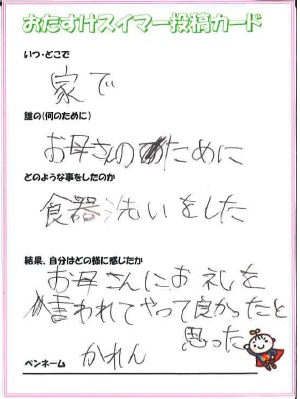 おたすけスイマー投稿カード
いつ・どこで
家で
誰の(何のために)
お母さんのために
どのような事をしたのか
食器洗いをした
結果、自分はどの様に感じたか
お母さんにお礼を
言われてやって良かったと
思った
ペンネーム かれん